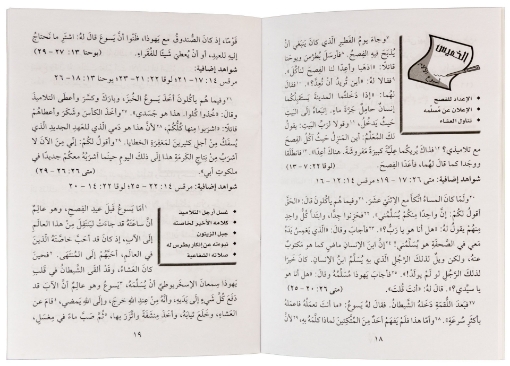 الخميس
الإعداد للفصح
الإعلان عن مُسلِّمه
تناول العشاء
وَجاءَ يومُ الفَطيرِ الَّذي كانَ يَنبَغي أنْ
يُذبَحَ فيهِ الفِصحُ. فأرسَلَ بُطرُسَ ويوحَنا
قائلاً: «اذهَبا وأعِدّا لنا الفِصحَ لنأكُلَ».
فقالا لهُ: «أين تُريدُ أنْ نُعِدَّ؟». فقالَ
لهُما: «إذا دَخَلتُما المدينةَ يَستَقبِلُكُما
إنسانٌ حامِلٌ جَرَّةَ ماءٍ. اتبَعاهُ إلى البَيتِ
حَيثُ يَدخُلُ، وقولا لرَبِّ البَيتِ: يقولُ
لكَ المُعَلِّمُ: أين المَنزِلُ حَيثُ آكُلُ الفِصحَ
مع تلاميذي؟ فذاكَ يُريكُما عِلّيَّةً كبيرَةً مَفروشَةً. هناكَ أعِدّا». فانطَلَقا
ووَجَدا كما قالَ لهُما، فأعَدّا الفِصحَ. (لوقا ٢٢: ٧-١٣)
شواهد إضافية: متى ٢٦: ١٧ - ١٩؛ مرقس ١٤: ١٢ - ١٦
ولَمّا كانَ المساءُ اتَّكأَ مع الاثنَيْ عشَرَ. وفيما هُم يأكُلونَ قالَ: «الحَقَّ
أقولُ لكُمْ: إنَّ واحِدًا مِنكُمْ يُسَلِّمُني». فحَزِنوا جِدًّا، وابتَدأَ كُلُّ واحِدٍ
مِنهُم يقولُ لهُ: «هل أنا هو يا رَبُّ؟». فأجابَ وقالَ: «الَّذي يَغمِسُ يَدَهُ
مَعي في الصَّحفَةِ هو يُسَلِّمُني! إنَّ ابنَ الإنسانِ ماضٍ كما هو مَكتوبٌ
عنهُ، ولكن ويلٌ لذلكَ الرَّجُلِ الَّذي بهِ يُسَلَّمُ ابنُ الإنسانِ. كانَ خَيرًا
لذلكَ الرَّجُلِ لو لَمْ يولَدْ!». فأجابَ يَهوذا مُسَلِّمُهُ وقالَ: «هل أنا هو
يا سيِّدي؟». قالَ لهُ: «أنتَ قُلتَ». (متى ٢٦: ٢٠ - ٢٥)
فبَعدَ اللُّقمَةِ دَخَلهُ الشَّيطانُ. فقالَ لهُ يَسوعُ: «ما أنتَ تعمَلُهُ فاعمَلهُ
بأكثَرِ سُرعَةٍ». وأمّا هذا فلَمْ يَفهَمْ أحَدٌ مِنَ المُتَّكِئينَ لماذا كلَّمَهُ بهِ،
١٨
قَوْمًا، إذ كانَ الصُّندوقُ مع يَهوذا، ظَنّوا أنَّ يَسوعَ قالَ لهُ: اشتَرِ ما نَحتاجُ
إليهِ للعيدِ، أو أنْ يُعطيَ شَيئًا للفُقَراءِ. (يوحنا ١٣: ٢٧ - ٢٩)
شواهد إضافية:
مرقس ١٤: ١٧ - ٢١؛ لوقا ٢٢: ٢١ - ٢٣؛ يوحنا ١٣: ١٨ - ٢٦
وفيما هُم يأكُلونَ أخَذَ يَسوعُ الخُبزَ، وبارَكَ وكسَّرَ وأعطَى التلاميذَ
وقالَ: «خُذوا كُلوا. هذا هو جَسَدي». وأخَذَ الكأسَ وشَكَرَ وأعطاهُمْ
قائلاً: «اشرَبوا مِنها كُلُّكُمْ، لأنَّ هذا هو دَمي الَّذي للعَهدِ الجديدِ الَّذي
يُسفَكُ مِنْ أجلِ كثيرينَ لمَغفِرَةِ الخطايا. وأقولُ لكُمْ: إنّي مِنَ الآنَ لا
أشرَبُ مِنْ نِتاجِ الكَرمَةِ هذا إلى ذلكَ اليومِ حينَما أشرَبُهُ معكُمْ جديدًا في
ملكوتِ أبي». (متى ٢٦: ٢٦ - ٢٩)
شواهد إضافية: مرقس ١٤: ٢٢ - ٢٥؛ لوقا ٢٢: ١٤ - ٢٠
غسل أرجل التلاميذ
كلامه الأخير لخاصته
جبل الزيتون
نبوته عن إنكار بطرس له
صلاته الشفاعية
أمّا يَسوعُ قَبلَ عيدِ الفِصحِ، وهو عالِمٌ
أنَّ ساعَتَهُ قد جاءَتْ ليَنتَقِلَ مِنْ هذا العالَمِ
إلى الآبِ، إذ كانَ قد أحَبَّ خاصَّتَهُ الَّذينَ
في العالَمِ، أحَبَّهُمْ إلى المُنتَهَى. فحينَ
كانَ العَشاءُ، وقد ألقَى الشَّيطانُ في قَلبِ
يَهوذا سِمعانَ الإسخَريوطيِّ أنْ يُسَلِّمَهُ، يَسوعُ وهو عالِمٌ أنَّ الآبَ قد
دَفَعَ كُلَّ شَيءٍ إلى يَدَيهِ، وأنَّهُ مِنْ عِندِ اللهِ خرجَ، وإلَى اللهِ يَمضي، قامَ عن
العَشاءِ، وخَلَعَ ثيابَهُ، وأخَذَ مِنشَفَةً واتَّزَرَ بها، ثُمَّ صَبَّ ماءً في مِغسَلٍ،
١٩